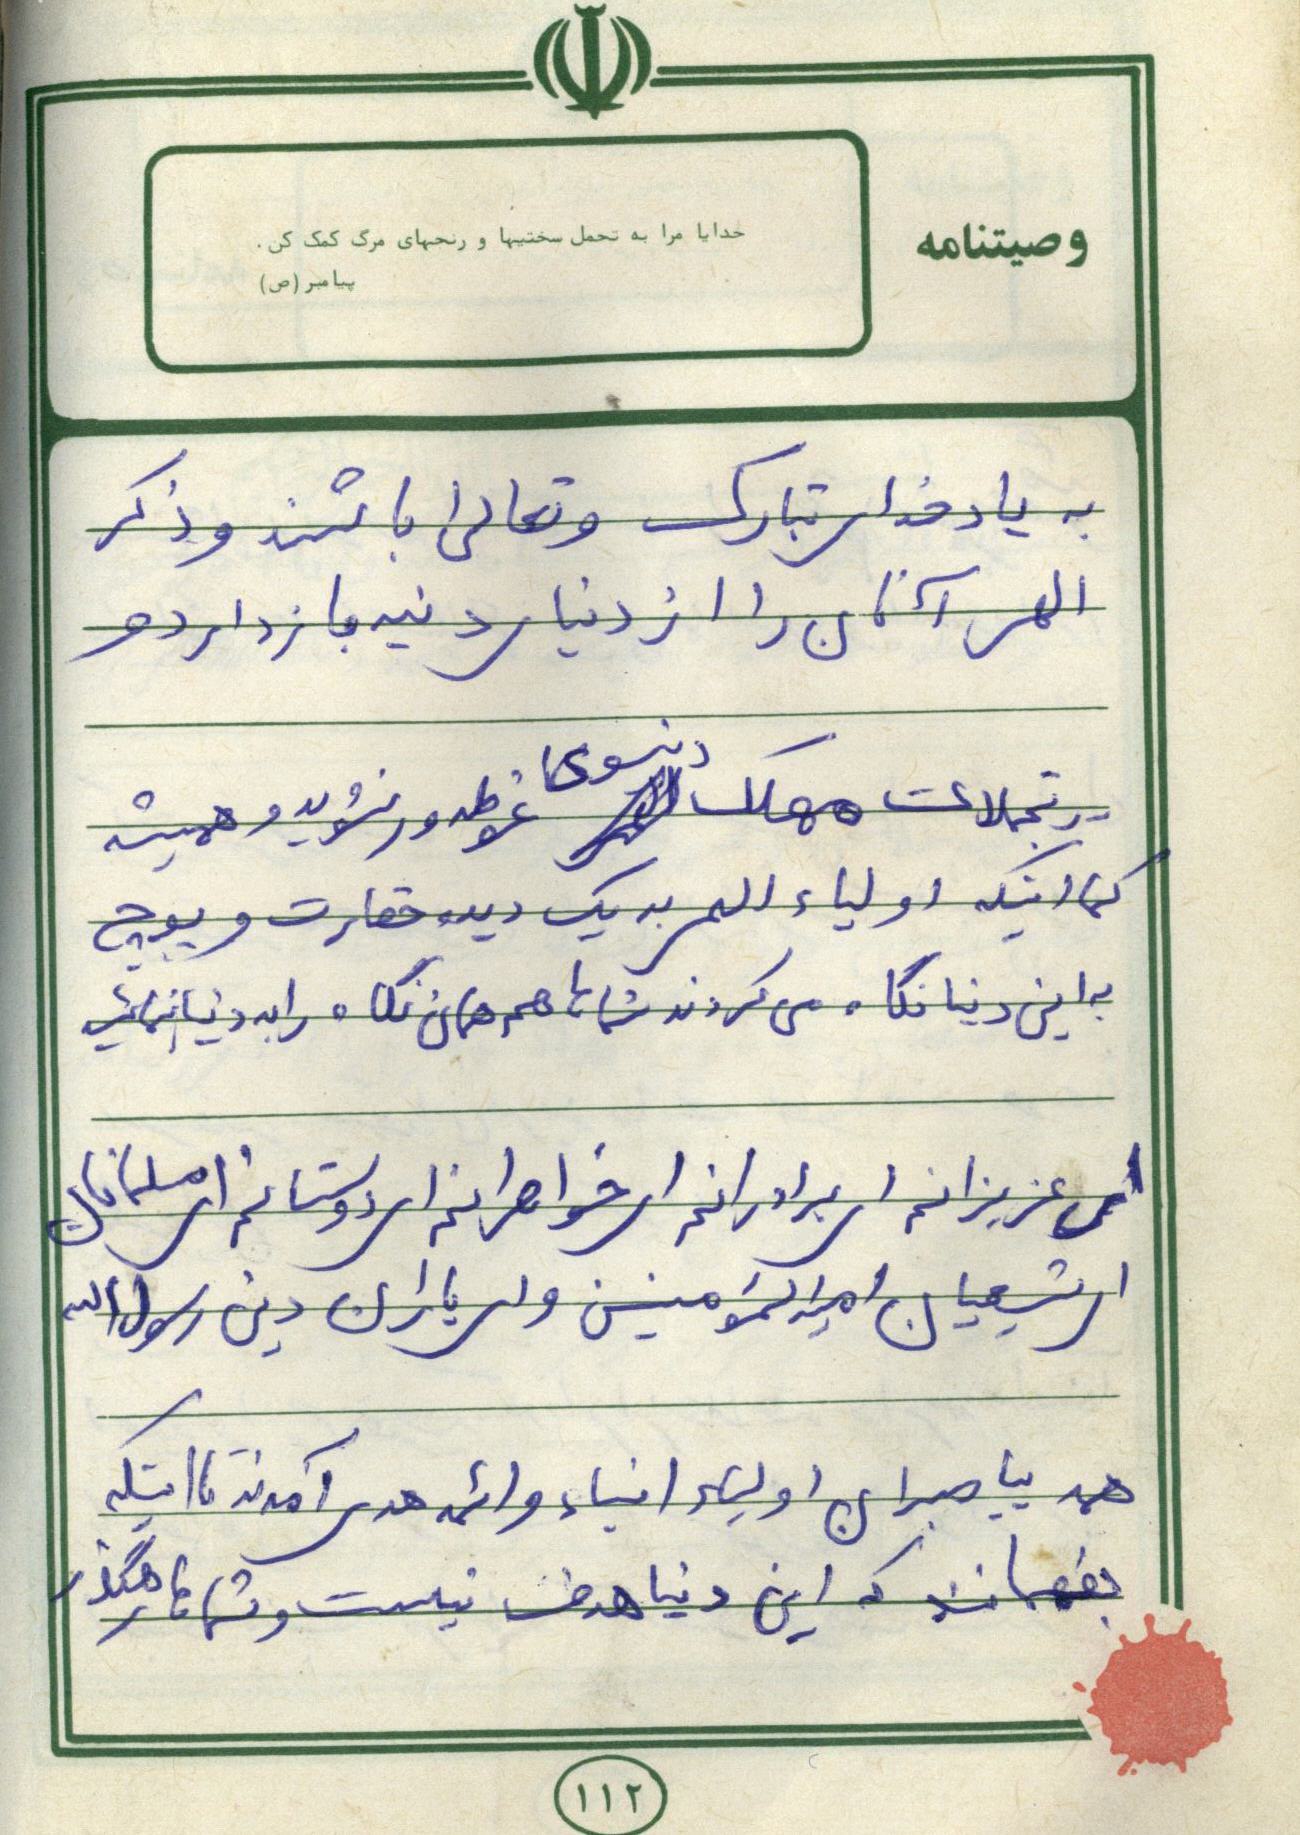 وصیتنامه
خدایا مرا به تحمل سختیها و رنجهای مرگ کمک کن.
پیامبر (ص)
به یاد خدای تبارک و تعالی باشند و ذکر
الهی آنان را از دنیای دنیه باز دارد و
در تجملات مهلک دنیوی غوطه ور نشوید و همیشه
کما اینکه اولیاء الهی به یک دیده حقارت و پوچ
به این دنیا نگاه می کردند شماها هم همان نگاه را به دنیا بنمائید
ای عزیزانم ای برادرانم ای خواهرانم ای دوستانم ای مسلمانان
ای شیعیان امیرالمؤمنین و ای یاران دین رسول الله
همه پیامبران اولیاء انبیاء و ائمه هدی آمدند تا اینکه
بفهمانند که این دنیا هدف نیست و شماها رهگذر
۱۱۲